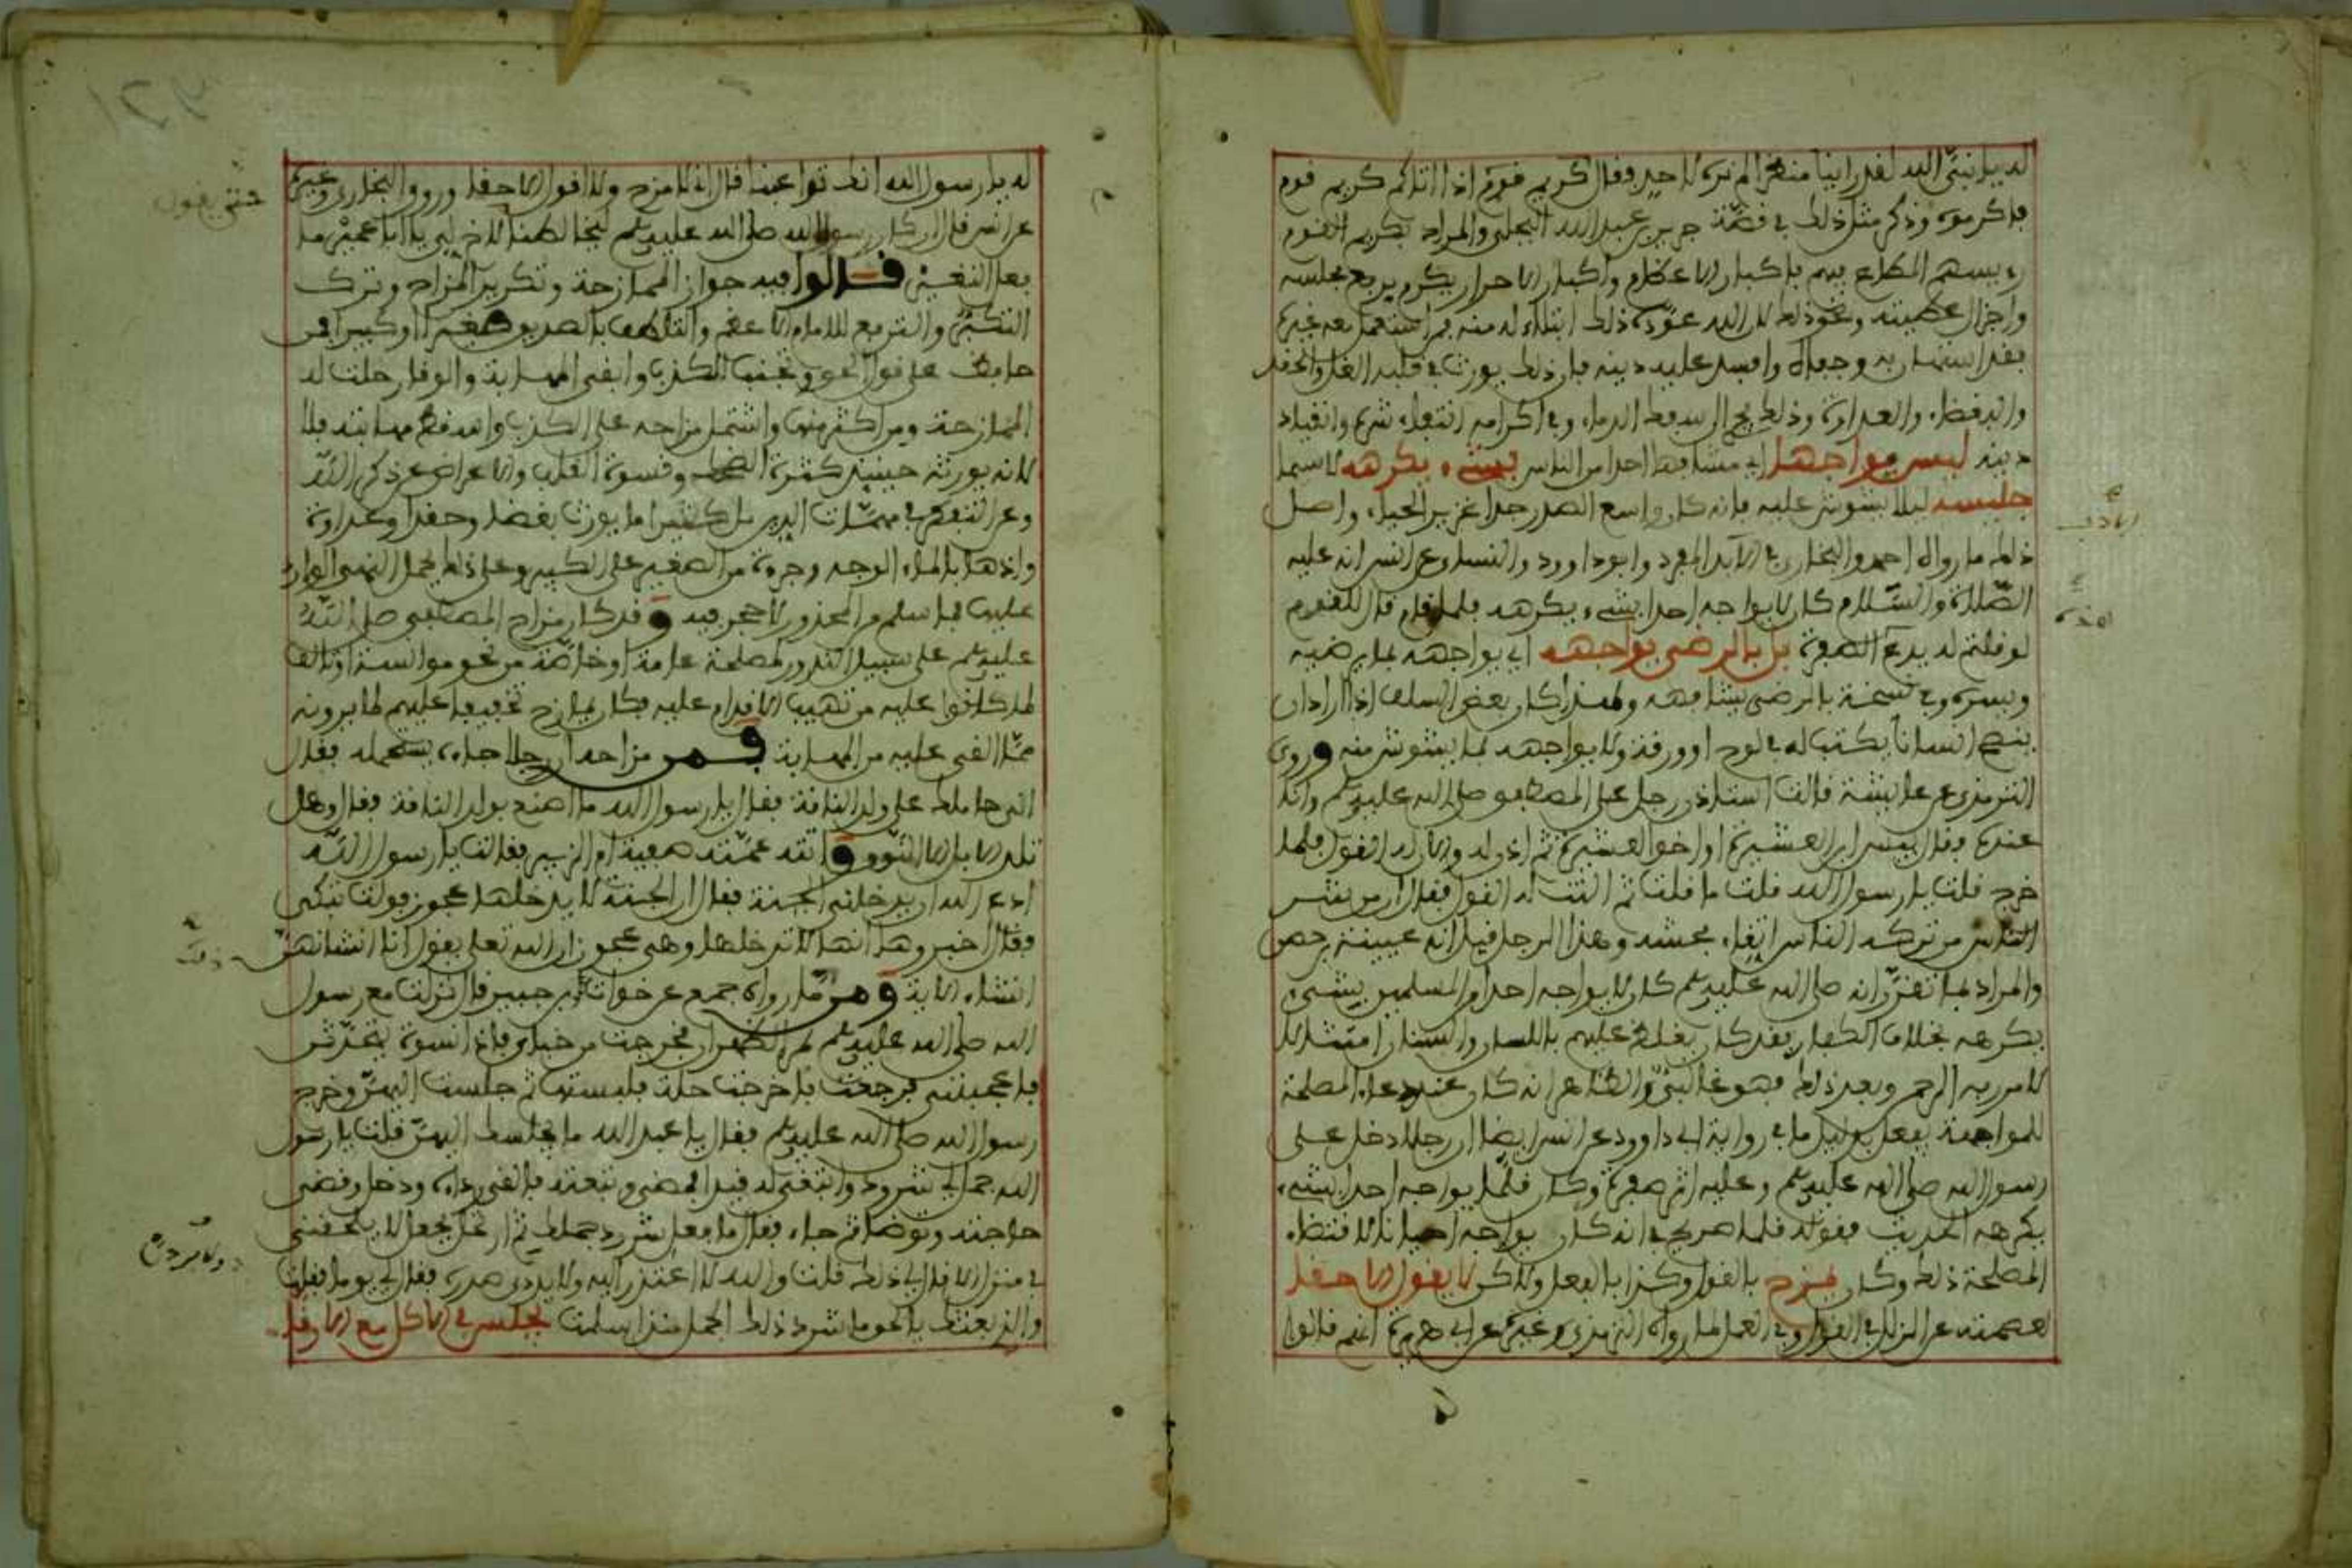 له يا نبي الله لقد رأينا منك ما لم نره لاحد فقال كريم قوم اذا اتاكم كريم قوم
فاكرموه وذكر مثل ذلك في قصة جرير بن عبد الله البجلي والمراد بكريم القوم
رءيسهم المطاع فيهم باكبار الاعظام واكبار الاحرار يكرم برفع مجلسه
واجزال عطيته ونحو ذلك لان الله عوده ذلك ابتلاء له منه فمن استعمل معه غيره
فقد استهان به وجفاه وافسد عليه دينه فان ذلك يورث في قلبه الغل والحقد
والبغضاء والعداوة وذلك يجر الى سفك الدماء وفي اكرامه اتقاء شره وانقياد
دينه ليس مواجها اي مشافها احدا من الناس بشيء يكرهه لاسيما
جليسه ليلا يشوش عليه فانه كان واسع الصدر جدا غزير الحياء واصل
ذلك ما رواه احمد والبخاري في الادب المفرد وابو داوود والنساءي عن انس انه عليه
الصلاة والسلام كان لا يواجه احدا بشيء يكرهه فلما قام قال للقوم
لو قلتم له يدع الصفرة بل بالرضى يواجهه اي يواجهه بما يرضيه
ويسره وفي نسخة بالرضى يشافهه ولهذا كان بعض السلف اذا اراد ان
ينصح انسانا يكتب له في لوح او ورقة ولا يواجهه لما يشوش منه وروى
الترمذي عن عايشة قالت استاذن رجل على المصطفى صلى الله عليه وسلم وانا
عنده فقال بيس ابن العشيرة او اخو العشيرة ثم اذن له والان له القول فلما
خرج قلت يا رسول الله قلت ما قلت ثم النت له القول فقال ان من شر
الناس من تركه الناس اتقاء فحشه وهذا الرجل قيل انه عيينة بن حصن
والمراد بما تقرر انه صلى الله عليه وسلم كان لا يواجه احدا من المسلمين بشيء
يكرهه بخلاف الكفار فقد كان يغلظ عليهم باللسان والسنان امتثالا
لامر ربه الرحمن وبعد ذلك فهو غالبي والظاهر انه كان عند دعاء المصلحة
للمواجهة يفعل بدليل ما في رواية ابي داوود عن انس ايضا ان رجلا دخل على
رسول الله صلى الله عليه وسلم وعليه اثر صفرة وكان قلما يواجه احدا بشيء
يكرهه الحديث فقوله قلما صريح في انه كان يواجه احيانا لاقتضاء
المصلحة ذلك وكان يمزح بالقول وكذا بالفعل ولاكن لا يقول الا حقا
لعصمته عن الزلل في القول وفي العمل لما رواه الترمذي وغيره عن ابي هريرة انهم قالوا
له يا رسول الله انك تداعبنا قال اني لا امزح ولا اقول الا حقا وروى البخاري وغيره
عن انس قال ان كان رسول الله صلى الله عليه وسلم ليخالطنا لاخ لي يا ابا عمير ما
حتى يقول
فعل النغير قالوا فيه جواز الممازحة وتكرير المزاح وترك
التكبر والترفع للامام الاعظم والتلطف بالصديق صغيرا او كبيرا فمن
حافظ على قول الحق وتجنب الكذب وابقى المهابة والوقار حلت له
الممازحة ومن اكثر منها واشتمل مزاحه على الكذب واسقط مهابته فلا
لانه يورثه حينيذ كثرة الضحك وقسوة القلب والاعراض عن ذكر الله
وعن التفكر في مهمات الدين بل كثيرا ما يورث بغضا وحقدا وعداوة
واذهابا لماء الوجه وجرءة من الصغير على الكبير وعلى ذلك يحمل النهي الوارد
عليها فما سلم من المحذور لا حجر فيه وقد كان مزاح المصطفى صلى الله
عليه وسلم على سبيل الندور لمصلحة عامة او خاصة من نحو موانسة او تالف
لما كانوا عليه من تهيب الاقدام عليه فكان يمازح تخفيفا عليهم لما يرونه
مما القي عليه من المهابة فمن مزاحه ان رجلا جاءه يستحمله فقال
اني حاملك على ولد الناقة فقال يا رسول الله ما اصنع بولد الناقة فقال وهل
تلد الابل الا النوق واتته عمته صفية ام الزبير فقالت يا رسول الله
ادع الله ان يدخلني الجنة فقال ان الجنة لا يدخلها عجوز فولت تبكي
فقال اخبروها انها لا تدخلها وهي عجوز ان الله تعلى يقول انا انشأنهن
انشاء الاية ومن ما رواه جمع عن خوات بن جبير قال نزلت مع رسول
الله صلى الله عليه وسلم مر الظهران فخرجت من خباي فاذا نسوة يتحدثن
فاعجبنني فرجعت فاخرجت حلة فلبستها ثم جلست اليهن وخرج
رسول الله صلى الله عليه وسلم فقال يا عبد الله ما يجلسك اليهن قلت يا رسول
الله جمل لي شرود وابتغي له قيدا فمضى وتبعته فالقى رداءه ودخل وقضى
حاجته وتوضا ثم جاء فقال ما فعل شرود جملك ثم ارتحل فجعل لا يلحقني
في منزل الا قال لي ذلك قلت والله لا اعتذرن اليه ولابردن صدره فقال لي يوما فقلت
والذي بعثك بالحق ما شرد ذلك الجمل منذ اسلمت يجلس في الاكل مع الارقا